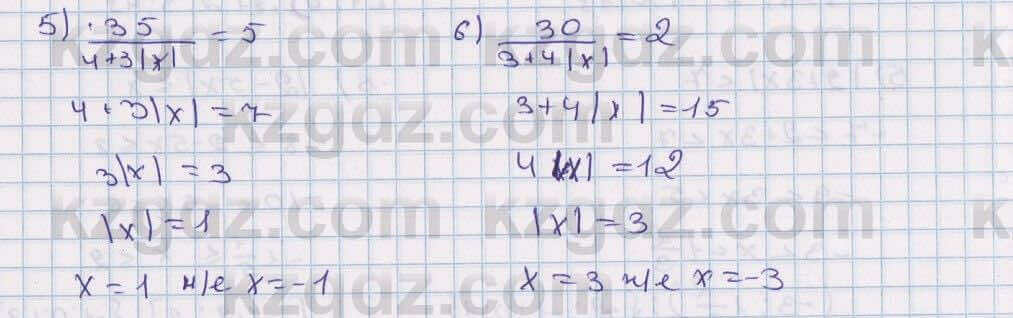 5) 35 / 4+3|x| = 5
4+3|x| = 7
3|x| = 3
|x| = 1
x = 1 н/е x = -1
6) 30 / 3+4|x| = 2
3+4|x| = 15
4|x| = 12
|x| = 3
x = 3 н/е x = -3
kzgdz.com
kzgdz.com
kzgdz.com
kzgdz.com
kzgdz.com
kzgdz.com